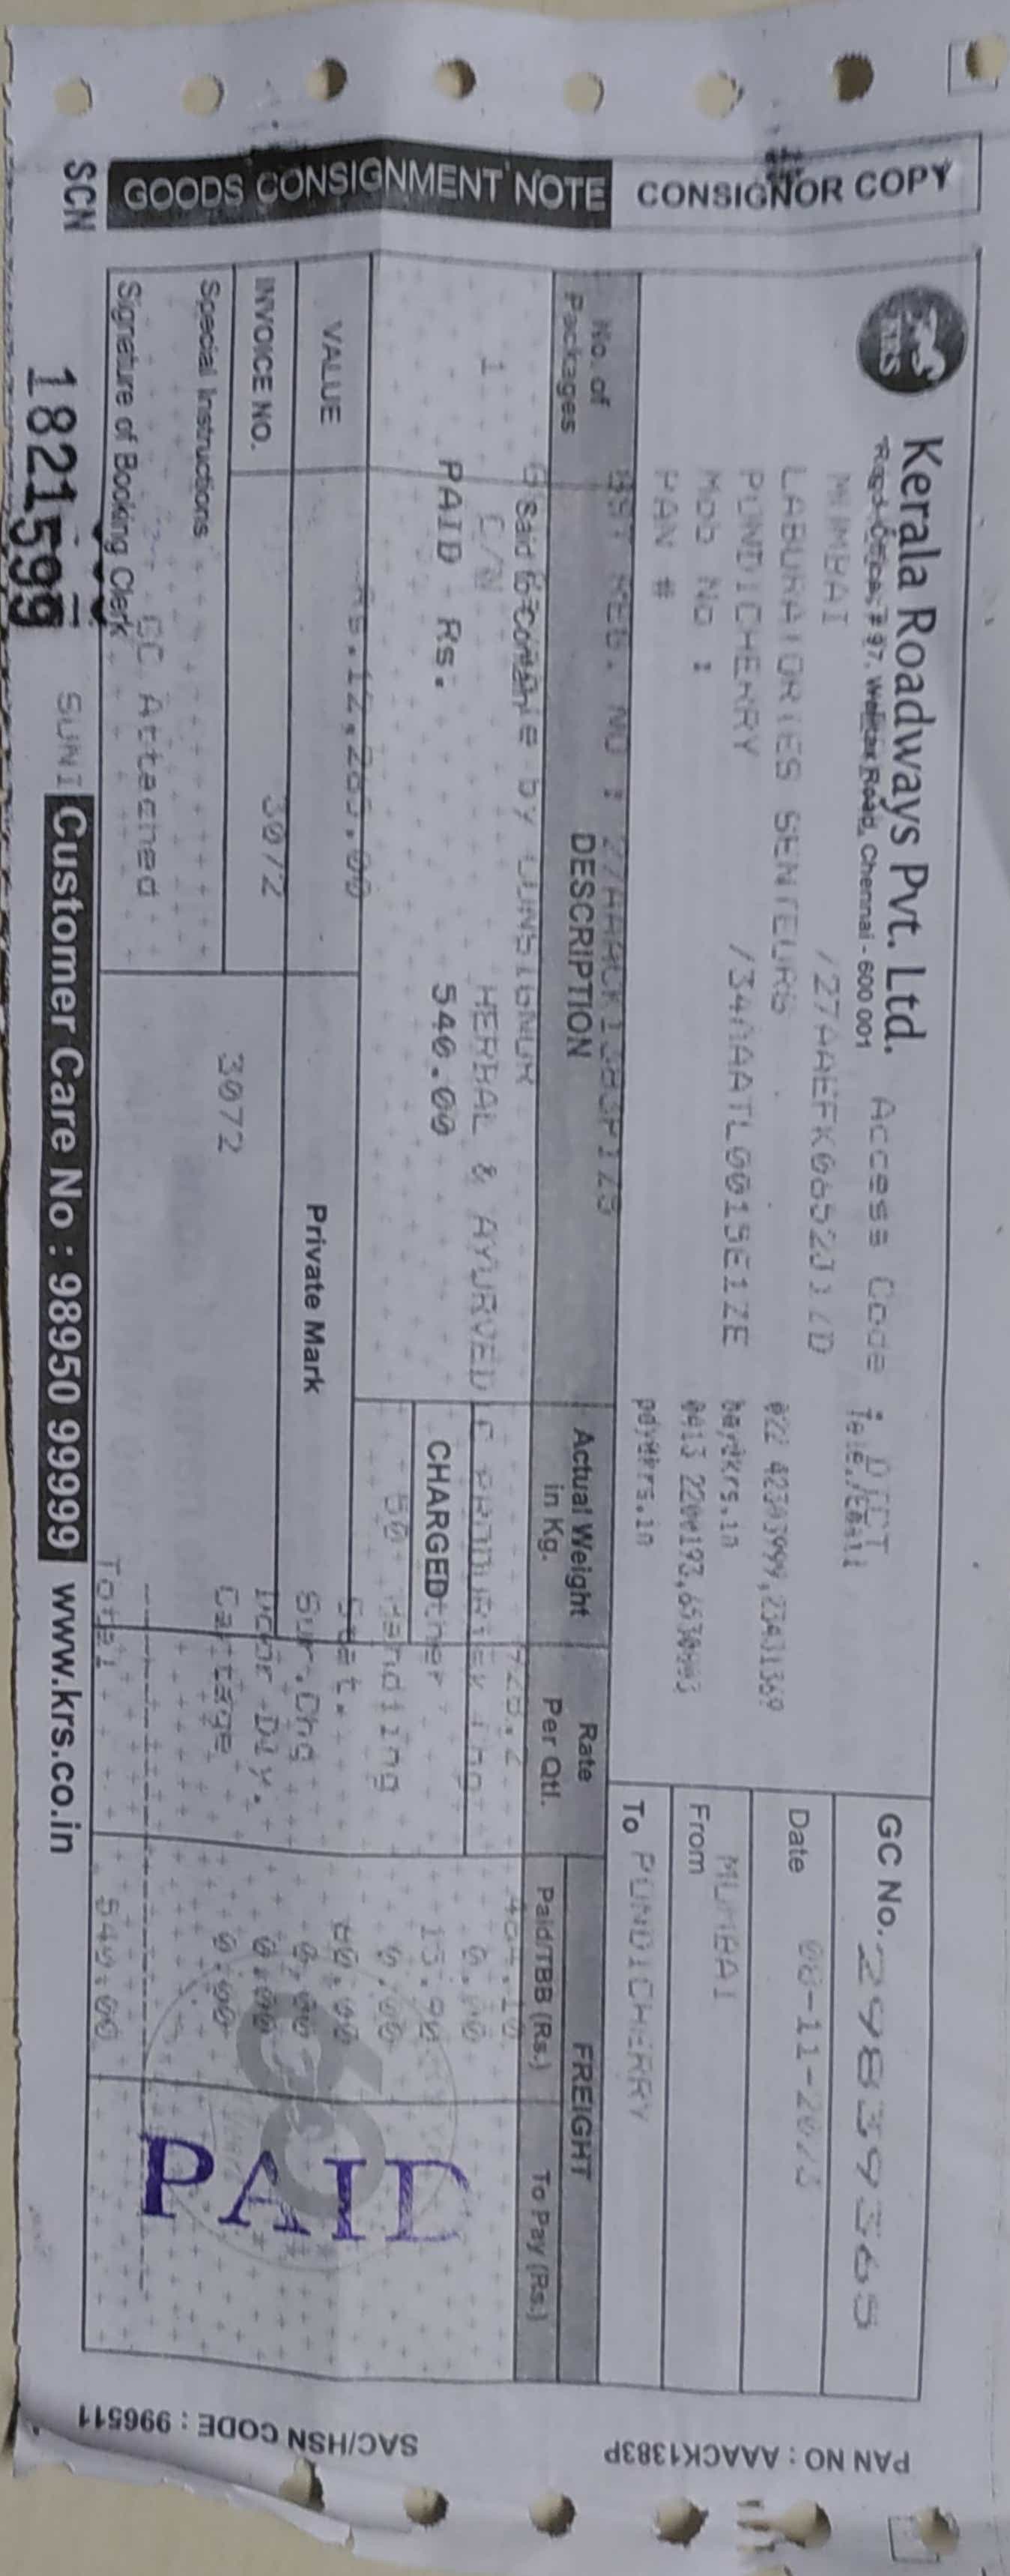 CONSIGNOR COPY
GOODS CONSIGNMENT NOTE
KRS
Kerala Roadways Pvt. Ltd.
Regd. Office, # 97, Road, Chennai - 600 001
Access Code : DICT
MUMBAI /27AAEFK0652J1ZD Tele./Email
LABORATORIES SENTEURS 022 42303999,23431369
PONDICHERRY /34AAATL0015E1ZE bay@krs.in
Mob No : 0413
PAN # pdy@krs.in
GC No. 298393365
Date 08-11-2023
From MUMBAI
To PONDICHERRY
GST REG. NO : 27AAACK1383P1Z5
No. of Packages
DESCRIPTION
Actual Weight in Kg.
Rate Per Qtl.
FREIGHT
Paid/TBB (Rs.)
To Pay (Rs.)
Said to Contain
by CONSIGNOR
1 C/N HERBAL & AYURVEDIC 0.00
PAID Rs. 540.00
CHARGED
Other 15.90
50 Handling 0.00
Stat. 60.00
VALUE Rs.12,285.00
Private Mark
Sur.Chg 0.00
INVOICE NO. 3072
Door Dly. 0.00
3072 Cartage 0.00
Special Instructions
GC Attached
Total 540.00
Signature of Booking Clerk
PAID
SCN 1821599
SUNI
Customer Care No : 98950 99999 www.krs.co.in
PAN NO : AAACK1383P
SAC/HSN CODE : 996511